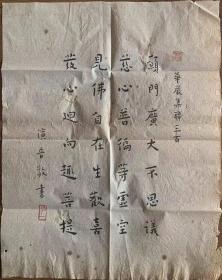 華嚴集聯三百
願門廣大不思議
慈心普徧等虛空
見佛自在生歡喜
發心迴向趣菩提
演音敬書